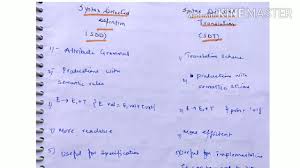 Syntax Directed
Definition
(SDD)
Syntax Directed
Translation
(SDT)
1) - Attribute Grammar
1) Translation Scheme
2) Productions with
semantic rules
2) • Productions with
semantic actions
3) E → E1+T { E.val = E1.val + T.val }
3) E → E1+T { print '+' }
4) More readable
4) More efficient
5) Useful for specification
5) Useful for implementation